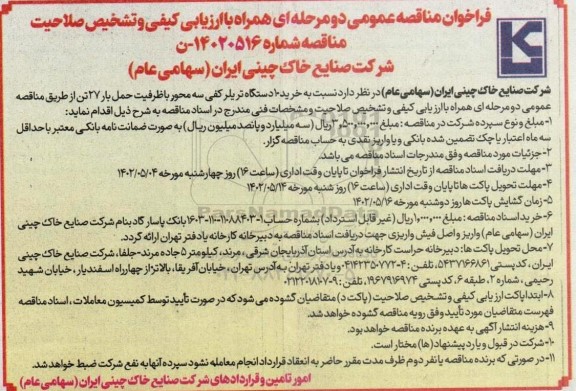 فراخوان مناقصه عمومی دو مرحله ای همراه با ارزیابی کیفی و تشخیص صلاحیت
مناقصه شماره ۱۴۰۲۰۵۱۶-ن
شرکت صنایع خاک چینی ایران (سهامی عام)
شرکت صنایع خاک چینی ایران (سهامی عام) در نظر دارد نسبت به خرید ۱۰ دستگاه تریلر کفی سه محور با ظرفیت حمل بار ۲۷ تن از طریق مناقصه
عمومی دو مرحله ای همراه با ارزیابی کیفی و تشخیص صلاحیت و مشخصات فنی مندرج در اسناد مناقصه به شرح ذیل اقدام نماید:
۱-مبلغ و نوع سپرده شرکت در مناقصه: مبلغ ۳،۵۰۰،۰۰۰،۰۰۰ ریال (سه میلیارد و پانصد میلیون ریال) به صورت ضمانت نامه بانکی معتبر با حداقل
سه ماه اعتبار یا چک تضمین شده بانکی و یا واریز نقدی به حساب مناقصه گزار.
۲-جزئیات مورد مناقصه وفق مندرجات اسناد مناقصه می باشد.
۳-مهلت دریافت اسناد مناقصه از تاریخ انتشار فراخوان تا پایان وقت اداری (ساعت ۱۶) روز چهارشنبه مورخه ۱۴۰۲/۰۵/۰۴
۴-مهلت تحویل پاکت ها تا پایان وقت اداری (ساعت ۱۶) روز شنبه مورخه ۱۴۰۲/۰۵/۱۴
۵-زمان گشایش پاکت ها روز دوشنبه مورخه ۱۴۰۲/۰۵/۱۶
۶-خرید اسناد مناقصه: مبلغ ۱،۰۰۰،۰۰۰ ریال (غیر قابل استرداد) بشماره حساب بانک پاسارگاد بنام شرکت صنایع خاک چینی
ایران (سهامی عام) واریز و اصل فیش واریزی جهت دریافت اسناد مناقصه به دبیرخانه کارخانه یا دفتر تهران ارائه گردد.
۷-محل تحویل پاکت ها: دبیرخانه حراست کارخانه به آدرس استان آذربایجان شرقی، مرند، کیلومتر ۵ جاده مرند-جلفا، شرکت صنایع خاک چینی
ایران، کدپستی ۵۴۳۷۱۶۶۸۶۱، تلفن: ۰۴-۴۲۳۵۰۷۷۲ و یا دفتر تهران به آدرس تهران، خیابان آفریقا، بالاتر از چهارراه اسفندیار، خیابان شهید
رحیمی، شماره ۲، طبقه ۶، کد پستی ۱۹۶۷۹۱۶۹۷۴، تلفن:
۸-ابتدا پاکت ارزیابی کیفی و تشخیص صلاحیت (پاکت د) متقاضیان گشوده می شود که در صورت تأیید توسط کمیسیون معاملات، اسناد مناقصه
فهرست متقاضیان مورد تأیید وفق رویه مناقصه گشوده خواهد شد.
۹-هزینه انتشار آگهی به عهده برنده مناقصه خواهد بود.
۱۰-شرکت در قبول و یا رد پیشنهاد (ها) مختار است.
۱۱-در صورتی که برنده مناقصه یا نفر دوم ظرف مدت مقرر حاضر به انعقاد قرارداد انجام معامله نشود سپرده آنها به نفع شرکت ضبط خواهد شد.
امور تامین و قراردادهای شرکت صنایع خاک چینی ایران (سهامی عام)